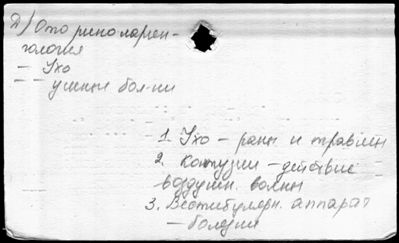 2) Ото рино ларин-
гология
— Ухо
— — ушные бол-ни
1. Ухо — раны и травмы
2. Контузии — действие
воздушн. волны
3. Вестибулярн. аппарат
— болезни